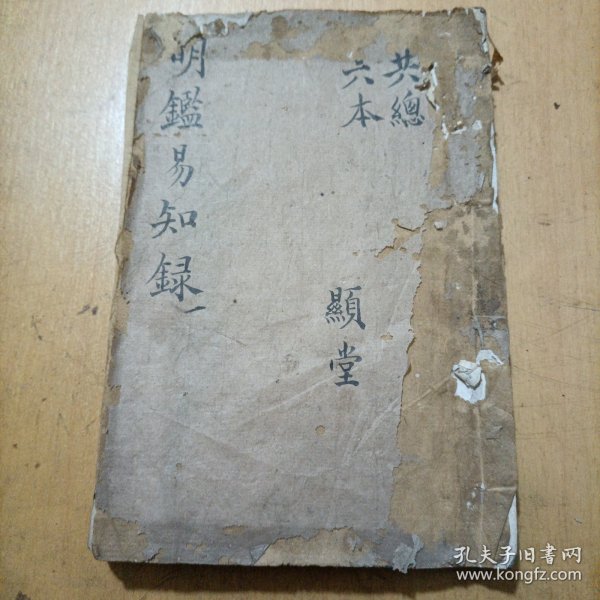 共總
六本
顯堂
明鑑易知録一
孔夫子旧書网
www.kongfz.com